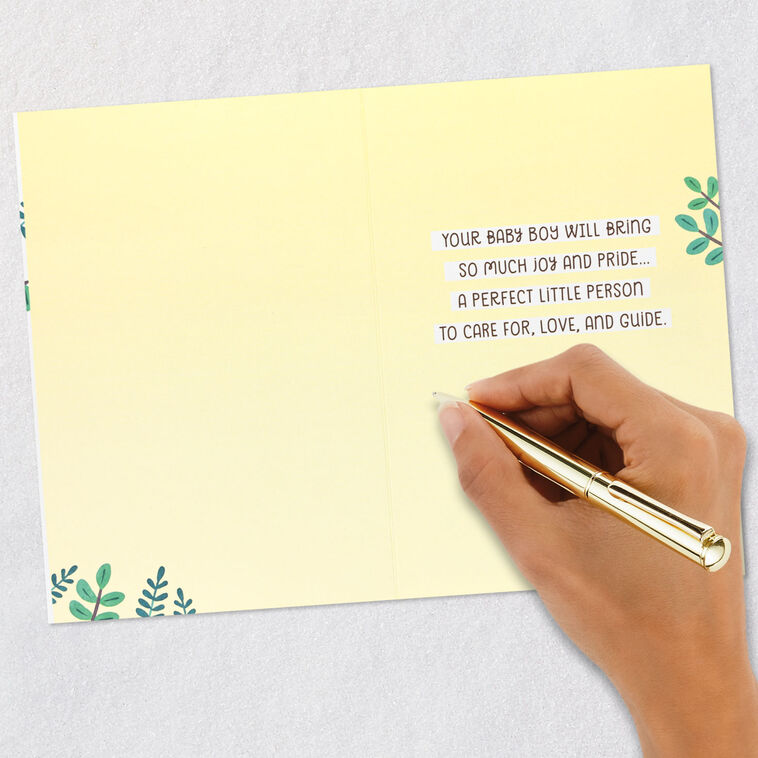 YOUR BABY BOY WILL BRING
SO MUCH JOY AND PRIDE...
A PERFECT LITTLE PERSON
TO CARE FOR, LOVE, AND GUIDE.